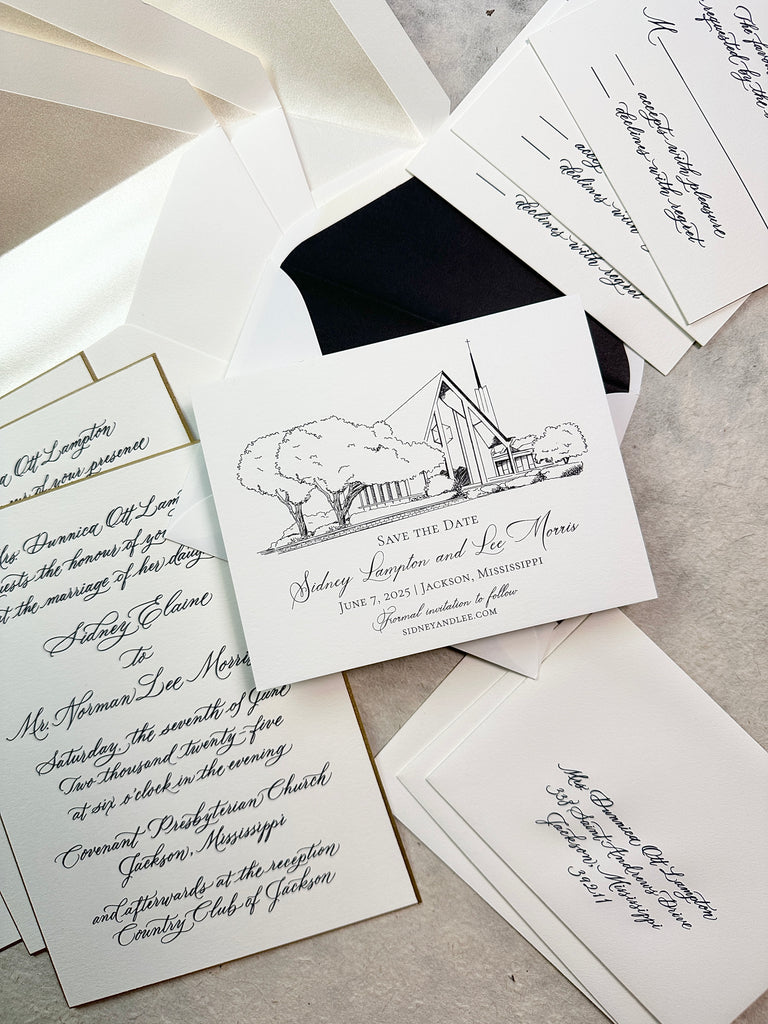 The favou
requested by the
M
accepts with pleasure
declines with regret
declines with
declines with regret
a Ott Lampton
of your presence
Mrs. Dunnica Ott Lam
the honour of yo
at the marriage of her daug
Sidney Elaine
to
Mr. Norman Lee Morris
Saturday, the seventh of June
Two thousand twenty-five
at six o'clock in the evening
Covenant Presbyterian Church
Jackson, Mississippi
and afterwards at the reception
Country Club of Jackson
Save the Date
Sidney Lampton and Lee Morris
June 7, 2025 | Jackson, Mississippi
Formal invitation to follow
sidneyandlee.com
Mrs. Dunnica Ott Lampton
338 Saint Andrews Drive
Jackson, Mississippi
39211